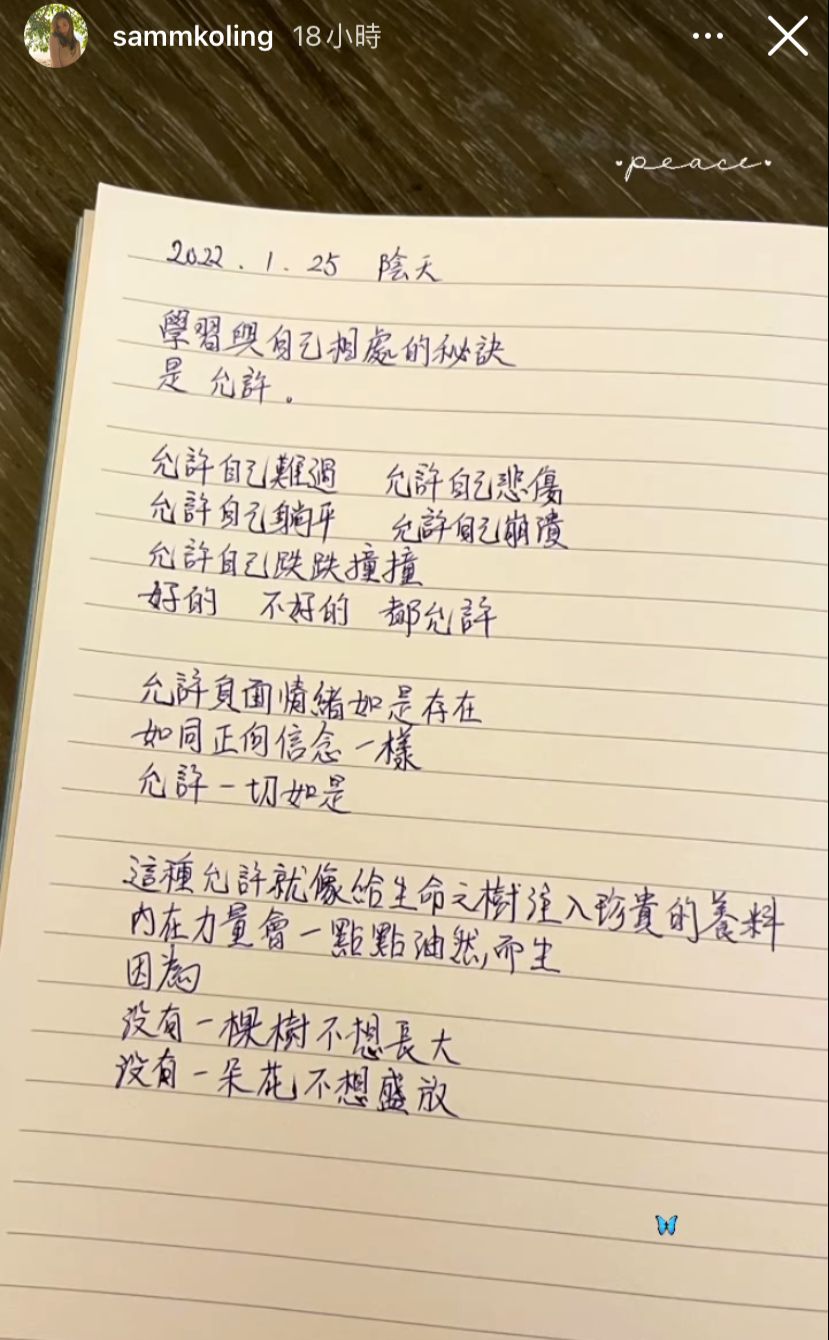 sammkoling 18小時
peace
2022.1.25 陰天
學習與自己相處的秘訣
是 允許。
允許自己難過 允許自己悲傷
允許自己躺平 允許自己崩潰
允許自己跌跌撞撞
好的 不好的 都允許
允許負面情緒如是存在
如同正向信念一樣
允許一切如是
這種允許就像給生命之樹注入珍貴的養料
內在力量會一點點油然而生
因為
沒有一棵樹不想長大
沒有一朵花不想盛放